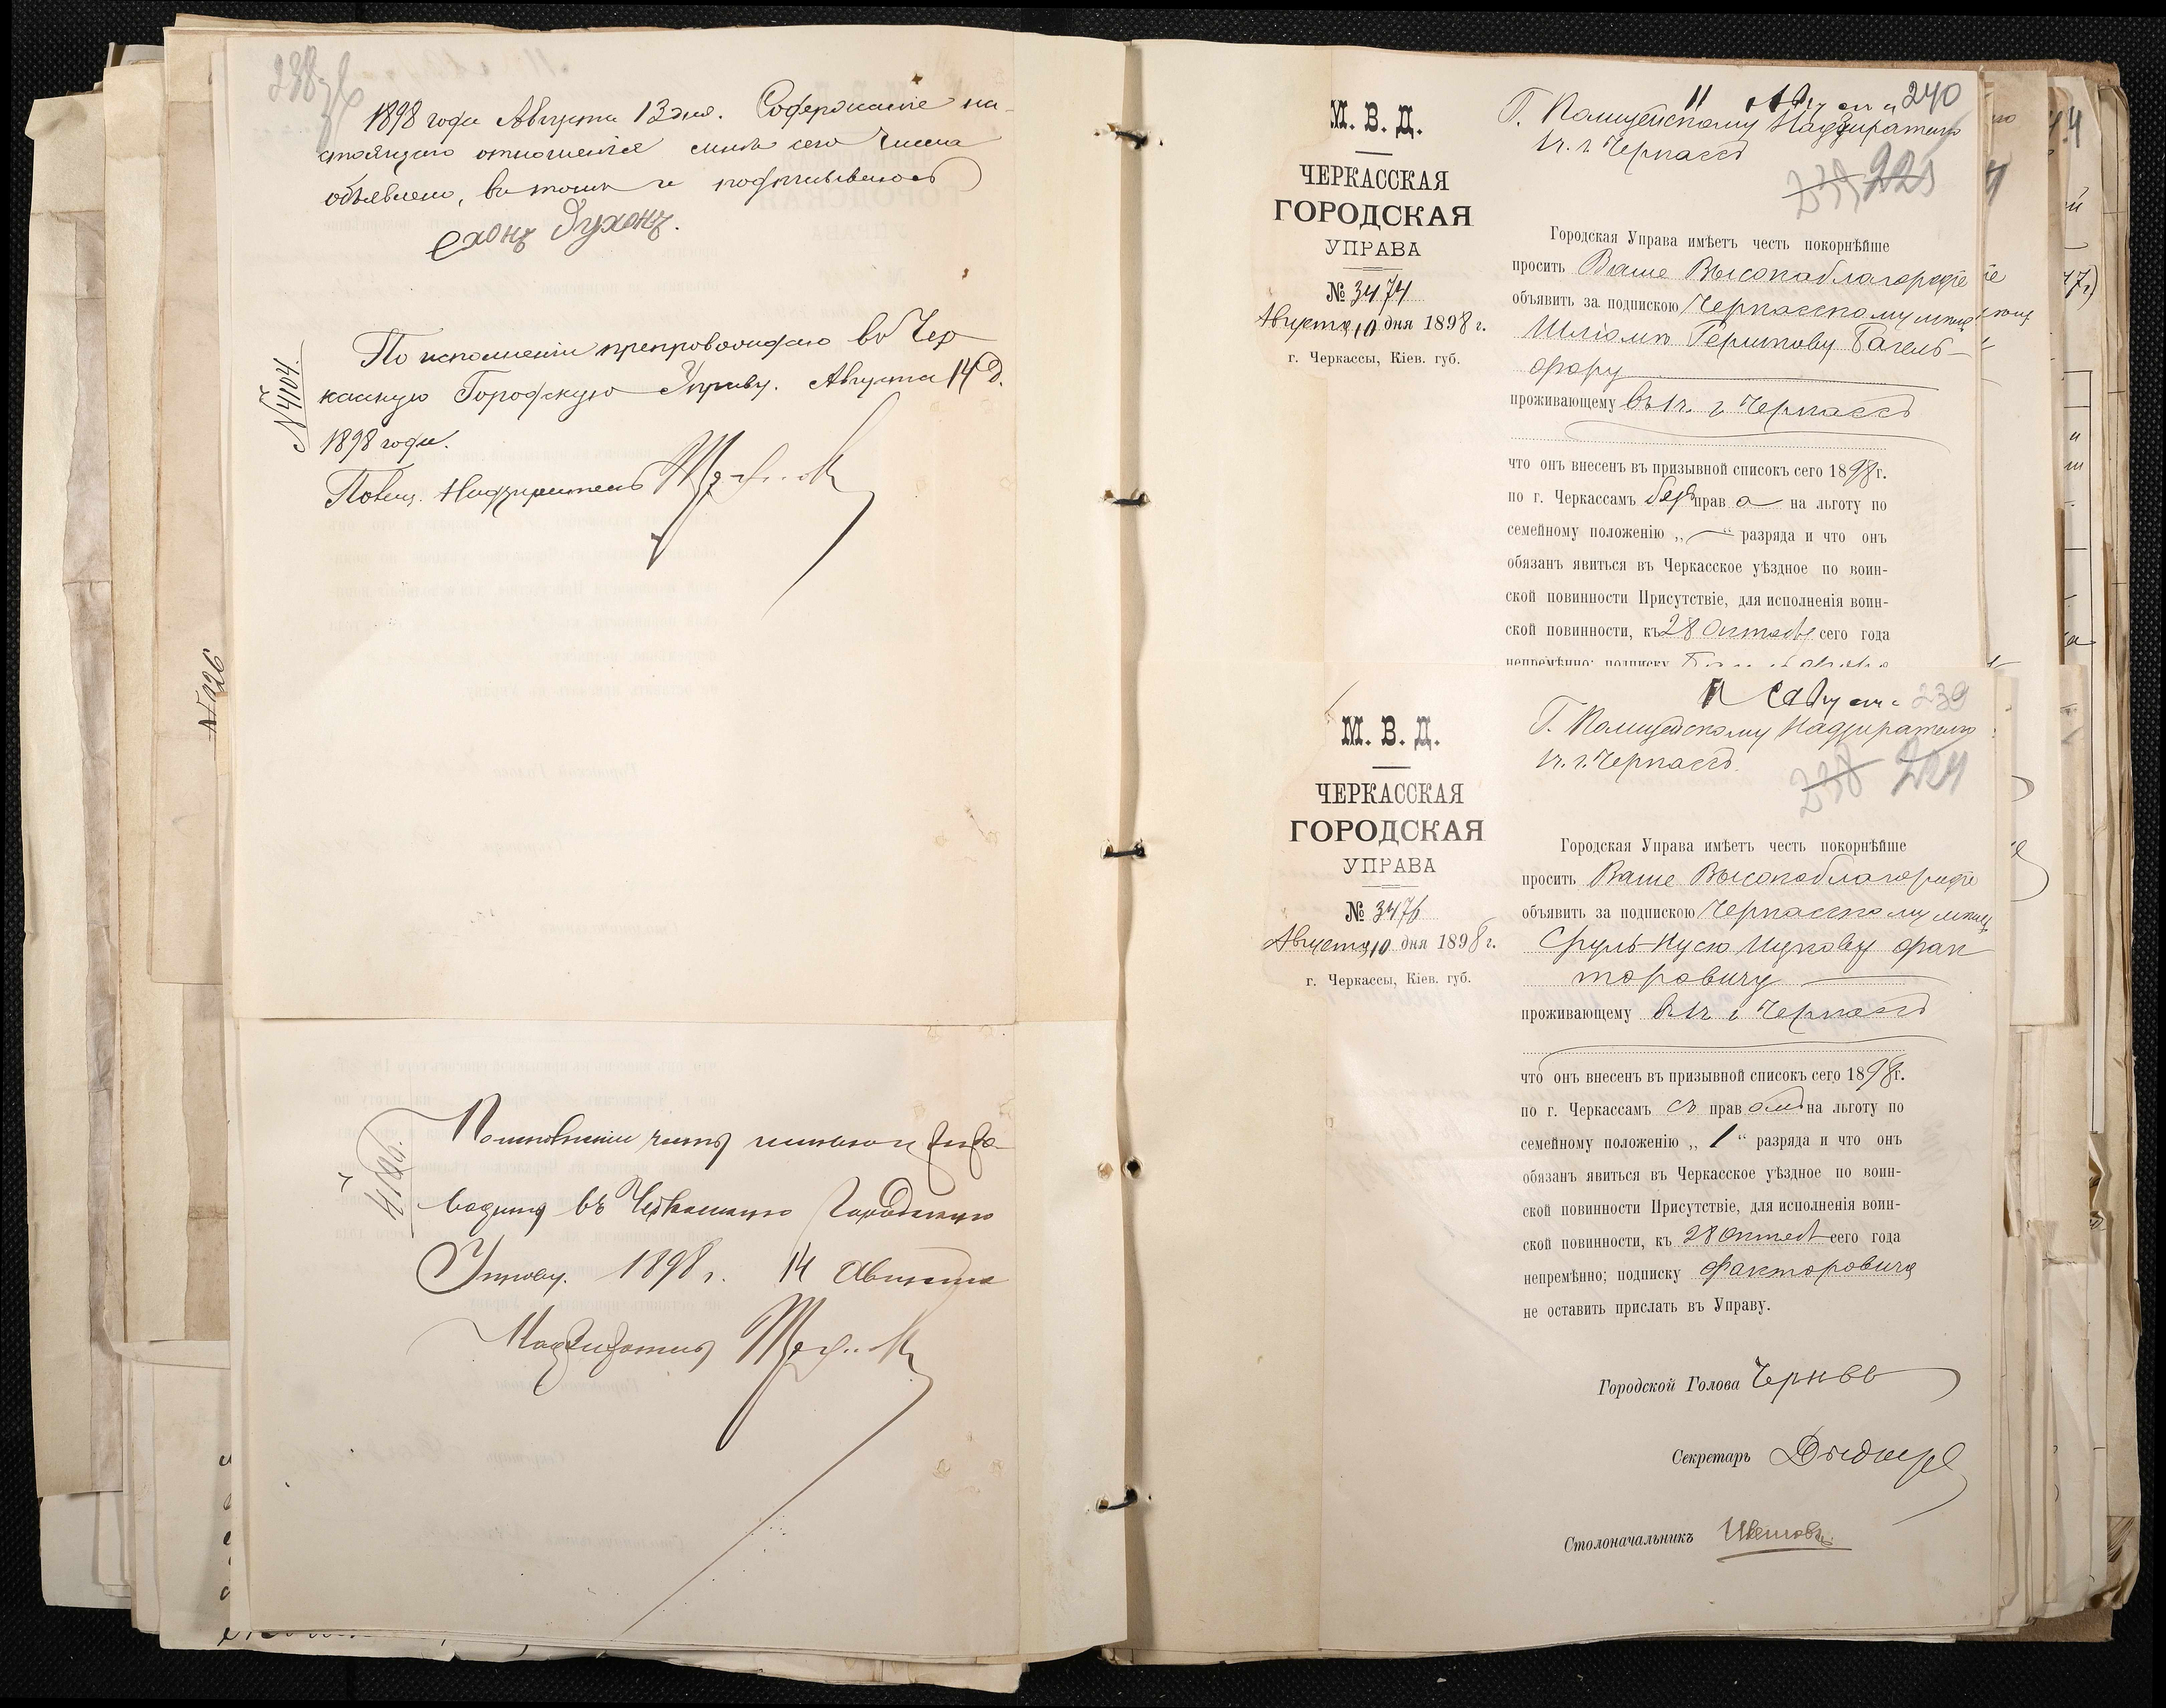 238 об
1898 года Августа 13 дня. Содержаніе на-
стоящаго отношенія мнѣ сего числа
объявлено, въ томъ и подписываюсь
Духонъ.
№ 4104.
По исполненіи препровождаю въ Чер
касскую Городскую Управу. Августа 14 д.
1898 года.
Полиц. Надзиратель
№ 126
4106.
въ Черкасскую Городскую
Управу. 1898 г. 14 Августа
Надзиратель
11 Августа 240
М. В. Д.
ЧЕРКАССКАЯ
ГОРОДСКАЯ
УПРАВА
№ 3474
Августа 10 дня 1898 г.
г. Черкассы, Кіев. губ.
Г. Полицейскому Надзирателю
1 ч. г. Черкассъ
239 223
Городская Управа имѣетъ честь покорнѣйше
просить Ваше Высокоблагородіе
объявить за подпискою Черкасскому мѣщ
Шліомѣ Гершкову Багель-
фору
проживающему въ 1 ч. г. Черкассъ
что онъ внесенъ въ призывной списокъ сего 1898 г.
по г. Черкассамъ безъ права на льготу по
семейному положенію „—“ разряда и что онъ
обязанъ явиться въ Черкасское уѣздное по воин-
ской повинности Присутствіе, для исполненія воин-
ской повинности, къ 28 Октября сего года
непремѣнно; подписку
11 Августа 239
М. В. Д.
ЧЕРКАССКАЯ
ГОРОДСКАЯ
УПРАВА
№ 3476
Августа 10 дня 1898 г.
г. Черкассы, Кіев. губ.
Г. Полицейскому Надзирателю
1 ч. г. Черкассъ.
238 224
Городская Управа имѣетъ честь покорнѣйше
просить Ваше Высокоблагородіе
объявить за подпискою Черкасскому мѣщ
Сруль-Нусю Ицкову Фак
торовичу
проживающему въ 1 ч г Черкассъ
что онъ внесенъ въ призывной списокъ сего 1898 г.
по г. Черкассамъ съ правомъ на льготу по
семейному положенію „1“ разряда и что онъ
обязанъ явиться въ Черкасское уѣздное по воин-
ской повинности Присутствіе, для исполненія воин-
ской повинности, къ 28 Октяб сего года
непремѣнно; подписку Факторовича
не оставить прислать въ Управу.
Городской Голова
Секретарь
Столоначальникъ